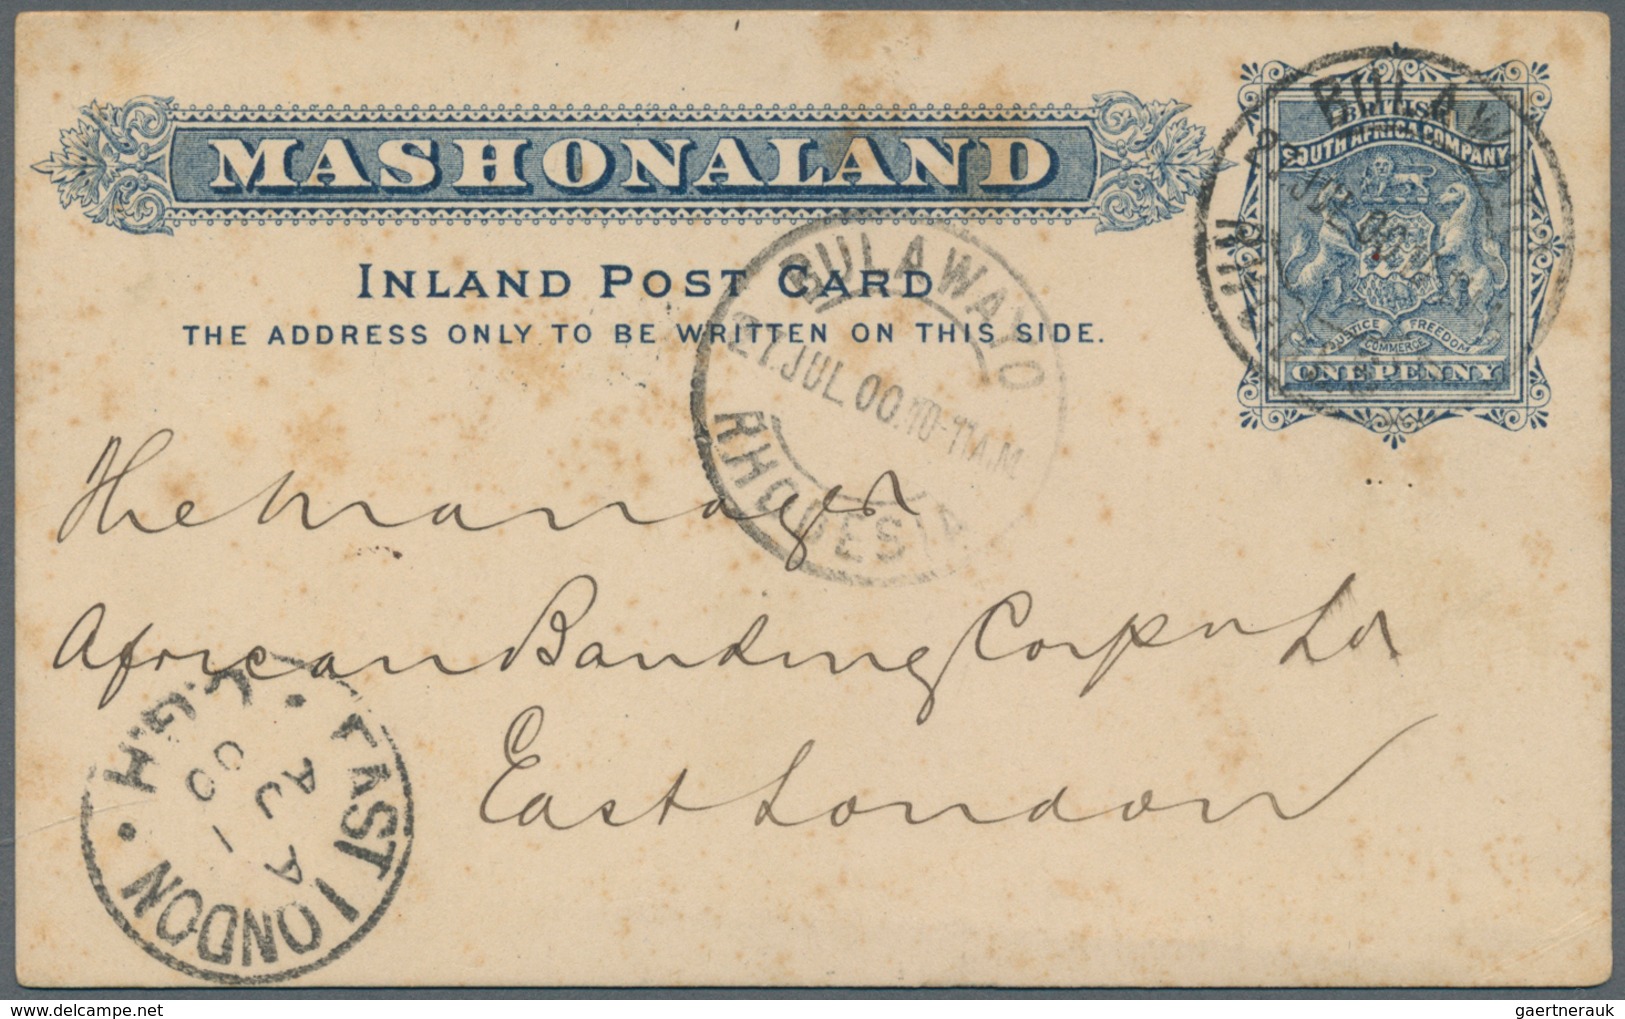 MASHONALAND
INLAND POST CARD
THE ADDRESS ONLY TO BE WRITTEN ON THIS SIDE.
BRITISH
SOUTH AFRICA COMPANY
JUSTICE COMMERCE FREEDOM
ONE PENNY
BULAWAYO
JUL 00
BULAWAYO
27.JUL.00.10-11A.M
RHODESIA
The Manager
African Banking Corpn Ld
East London
EAST LONDON
K.G.H.
A
AU 1
00
gaertnerauk